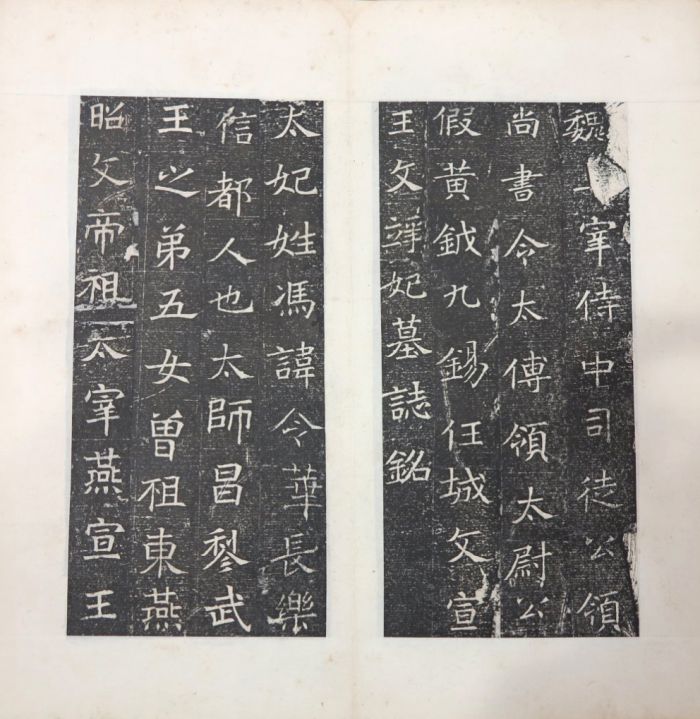 魏宰侍中司徒公領
尚書令太傅領太尉公
假黃鉞九錫任城文宣
王文竫妃墓誌銘
太妃姓馮諱令華長樂
信都人也太師昌黎武
王之弟五女曾祖東燕
昭文帝祖太宰燕宣王